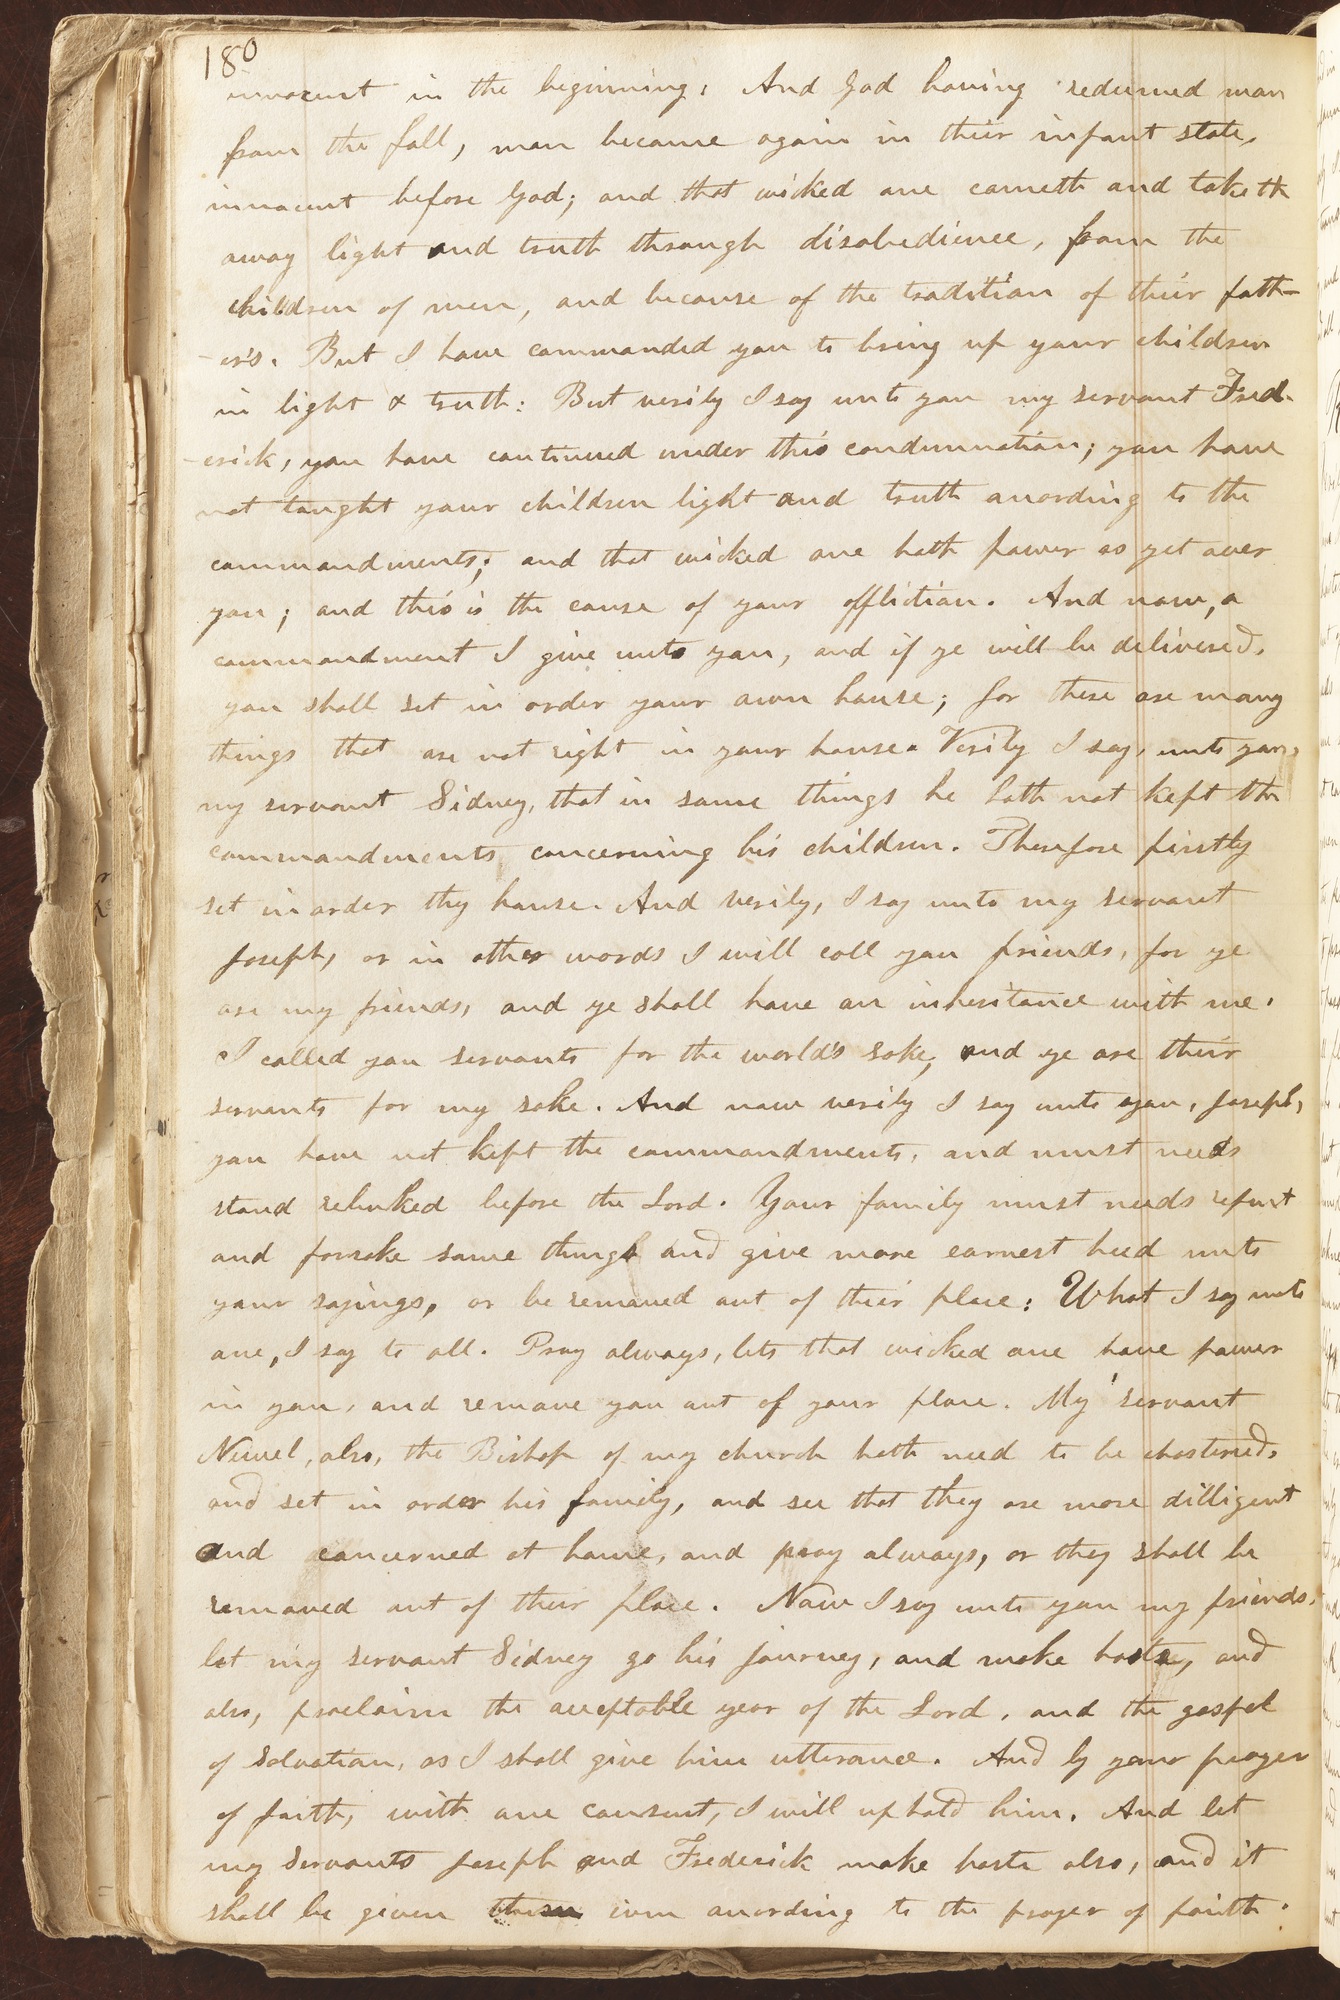 180
innocent in the beginning; And God having redeemed man
from the fall, man became again in their infant state,
innocent before God; and that wicked one cometh and taketh
away light and truth through disobedience, from the
children of men, and because of the tradition of their fath-
-ers. But I have commanded you to bring up your children
in light & truth: But verily I say unto you my servant Fred-
-erick, you have continued under this condemnation; you have
not taught your children light and truth according to the
commandments; and that wicked one hath power as yet over
you; and this is the cause of your affliction. And now, a
commandment I give unto you, and if ye will be delivered,
you shall set in order your own house; for there are many
things that are not right in your house. Verily I say, unto you,
my servant Sidney, that in some things he hath not kept the
commandments concerning his children. Therefore firstly
set in order thy house. And verily, I say unto my servant
Joseph, or in other words I will call you friends, for ye
are my friends, and ye shall have an inheritance with me.
I called you servants for the world's sake, and ye are their
servants for my sake. And now verily I say unto you, Joseph,
you have not kept the commandments, and must needs
stand rebuked before the Lord. Your family must needs repent
and forsake some things and give more earnest heed unto
your sayings, or be removed out of their place: What I say unto
one, I say to all. Pray always, lets that wicked one have power
in you, and remove you out of your place. My servant
Newel, also, the Bishop of my church hath need to be chastened,
and set in order his family, and see that they are more dilligent
and concerned at home, and pray always, or they shall be
removed out of their place. Now I say unto you my friends,
let my servant Sidney go his journey, and make haste, and
also, proclaim the acceptable year of the Lord, and the gospel
of salvation, as I shall give him utterance. And by your prayer
of faith, with one consent, I will uphold him. And let
my servants Joseph and Frederick make haste also, and it
shall be given them even according to the prayer of faith.